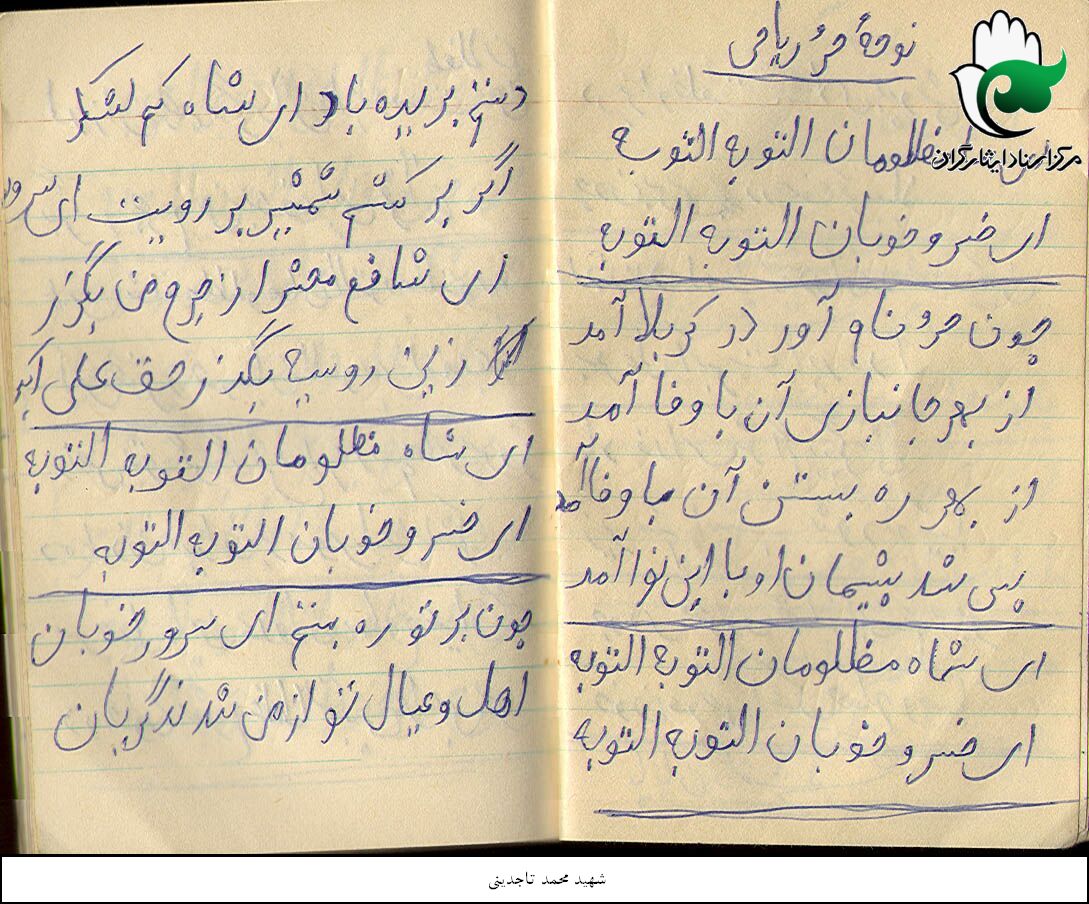 نوحهٔ حرّ ریاحی
مظلومان التوبه التوبه
ای خسرو خوبان التوبه التوبه
چون حرّ نام آور در کربلا آمد
از بهر جانبازی آن با وفا آمد
از بهر ره بستن آن با وفا آمد
پس شد پشیمان او با این نوا آمد
ای شاه مظلومان التوبه التوبه
ای خسرو خوبان التوبه التوبه
دستم بریده باد ای شاه کم لشکر
اگر بر کشم شمشیر بر رویت ای سرور
ای شافع محشر از جرم من بگذر
زین رو سیه بگذر حق علی اکبر
ای شاه مظلومان التوبه التوبه
ای خسرو خوبان التوبه التوبه
چون بر تو ره بستم ای سرور خوبان
اهل و عیال تو از من شدند گریان
مرکز اسناد ایثارگران
شهید محمد تاجدینی